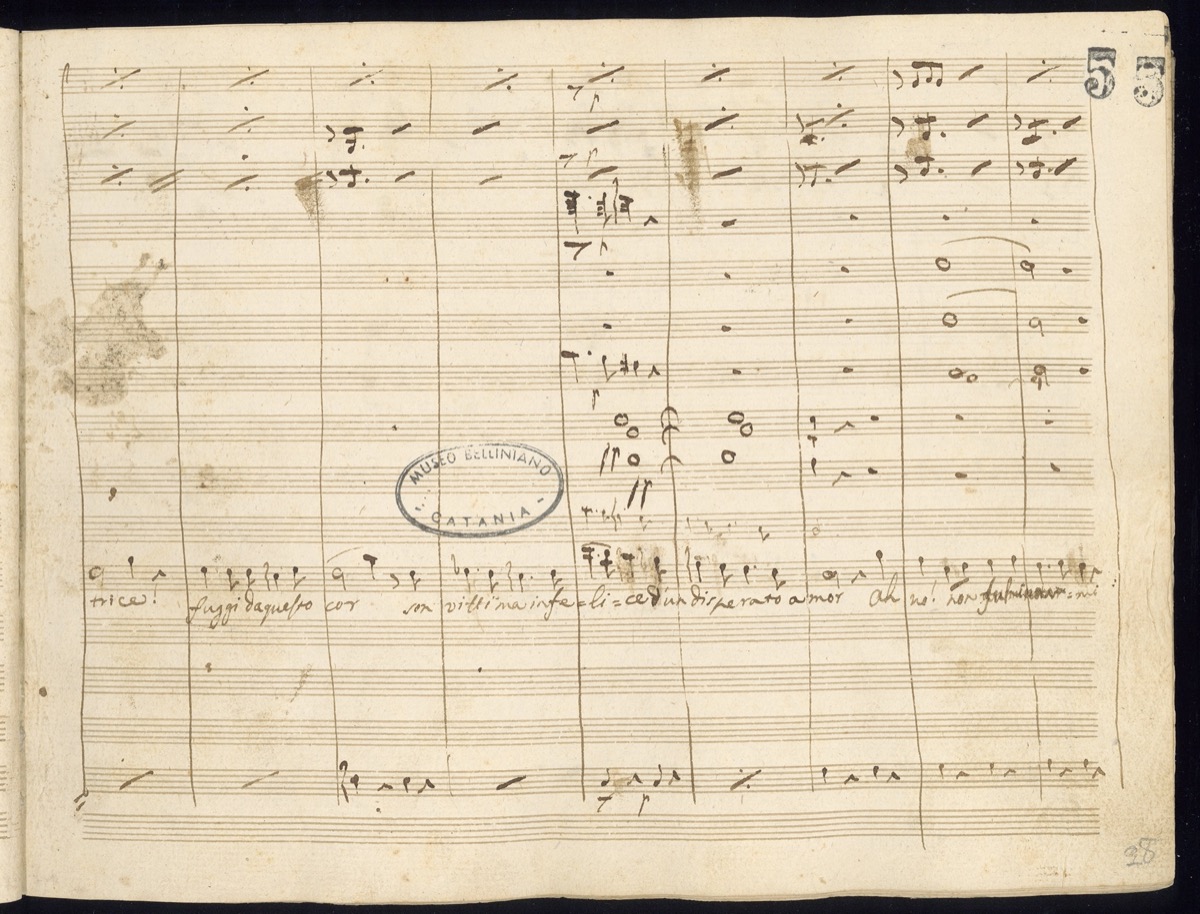 5 5
MUSEO BELLINIANO
CATANIA
trice! fuggi da questo cor son vittima infe=li=ce d'un disperato amor Ah no! non fulminar=mi
28